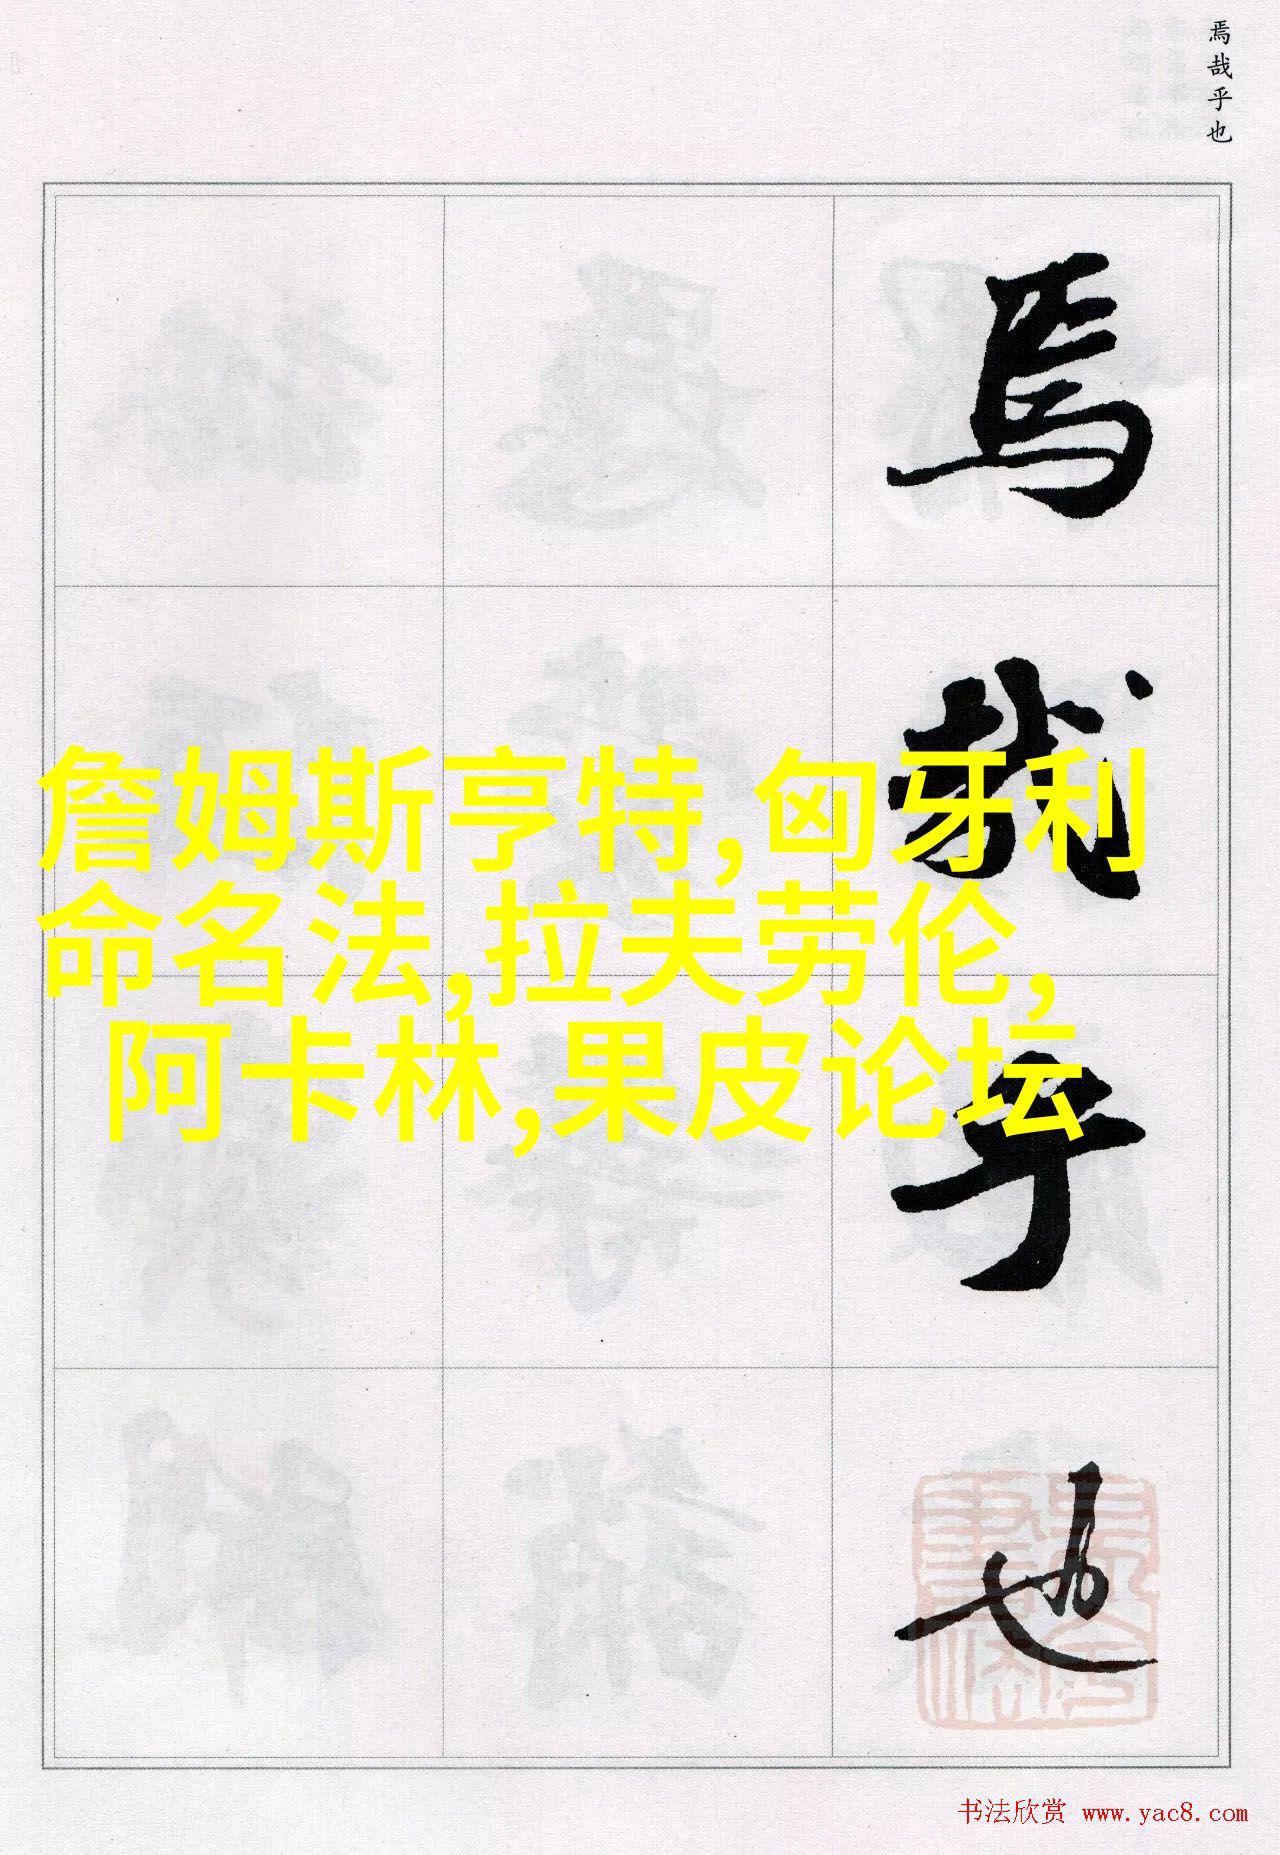 焉哉乎也
焉
哉
乎
也
詹姆斯亨特,匈牙利
命名法,拉夫劳伦,
阿卡林,果皮论坛
书法欣赏 www.yac8.com